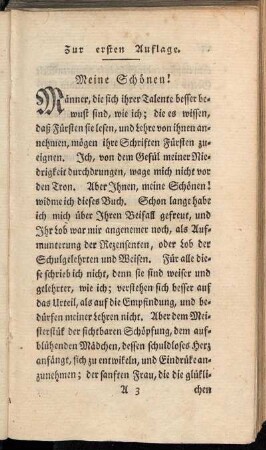 Zur ersten Auflage.
Meine Schönen!
Männer, die sich ihrer Talente besser be-
wust sind, wie ich; die es wissen,
daß Fürsten sie lesen, und Lehre von ihnen an-
nehmen, mögen ihre Schriften Fürsten zu-
eignen. Ich, von dem Gefül meiner Nie-
drigkeit durchdrungen, wage mich nicht vor
den Tron. Aber Ihnen, meine Schönen!
widme ich dieses Buch. Schon lange habe
ich mich über Ihren Beifall gefreut, und
Ihr Lob war mir angenemer noch, als Auf-
munterung der Rezensenten, oder Lob der
Schulgelehrten und Weisen. Für alle die-
se schrieb ich nicht, denn sie sind weiser und
gelehrter, wie ich; verstehen sich besser auf
das Urteil, als auf die Empfindung, und be-
dürfen meiner Lehren nicht. Aber dem Mei-
sterstük der sichtbaren Schöpfung, dem auf-
blühenden Mädchen, dessen schuldloses Herz
anfängt, sich zu entwikeln, und Eindrüke an-
zunehmen; der sanften Frau, die die glükli-
A 3 chen